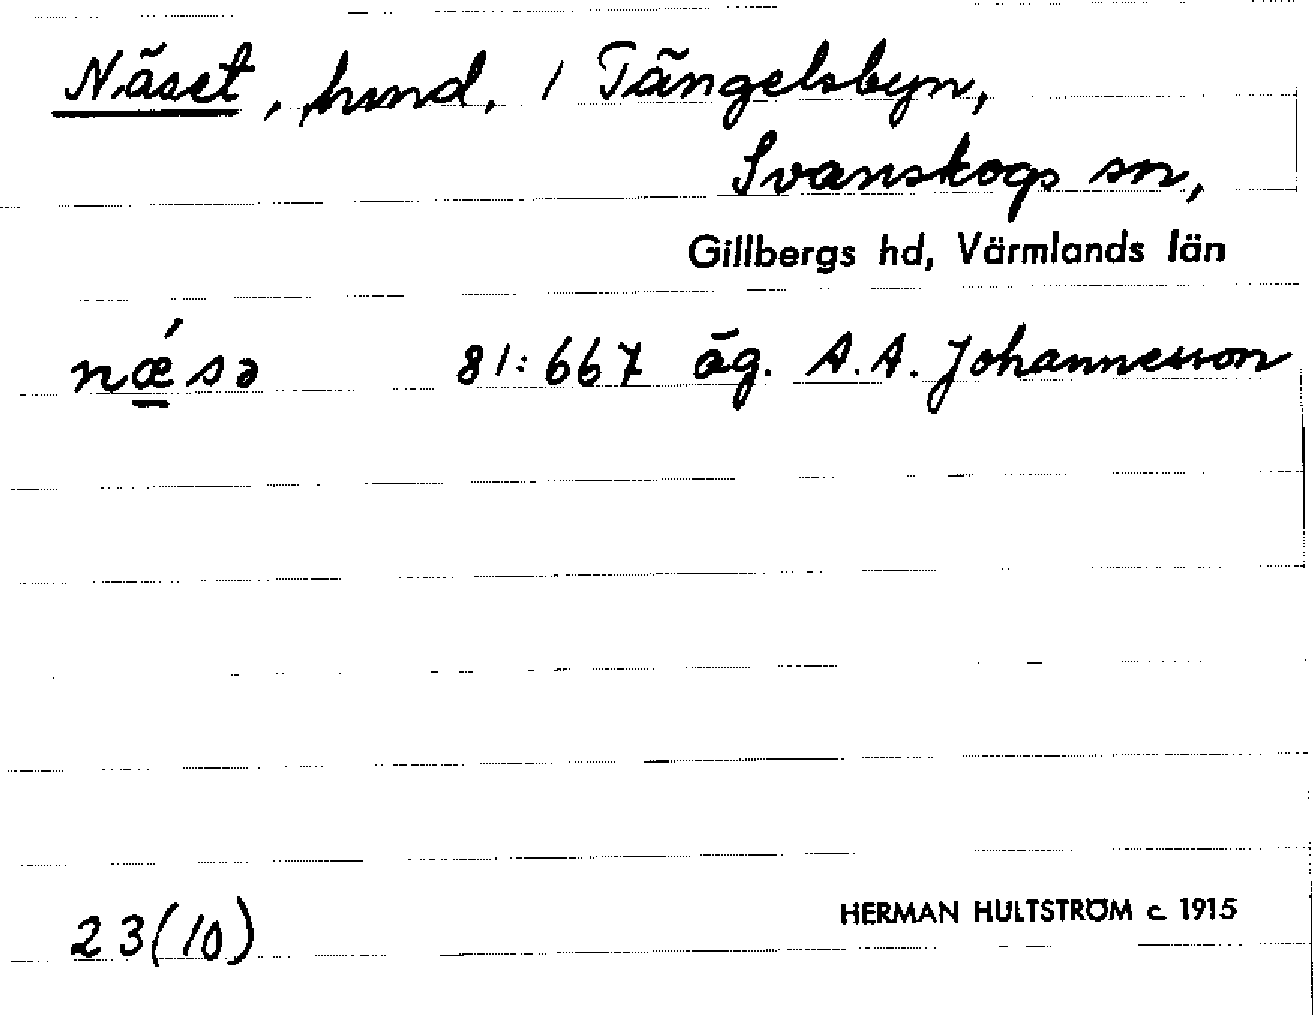 Näset, hmnd, 1 Tängelsbyn,
Svanskogs sn,
Gillbergs hd, Värmlands län
nǽ̲sə 81:667 äg. A.A. Johannesson
23(10)
HERMAN HULTSTRÖM c. 1915